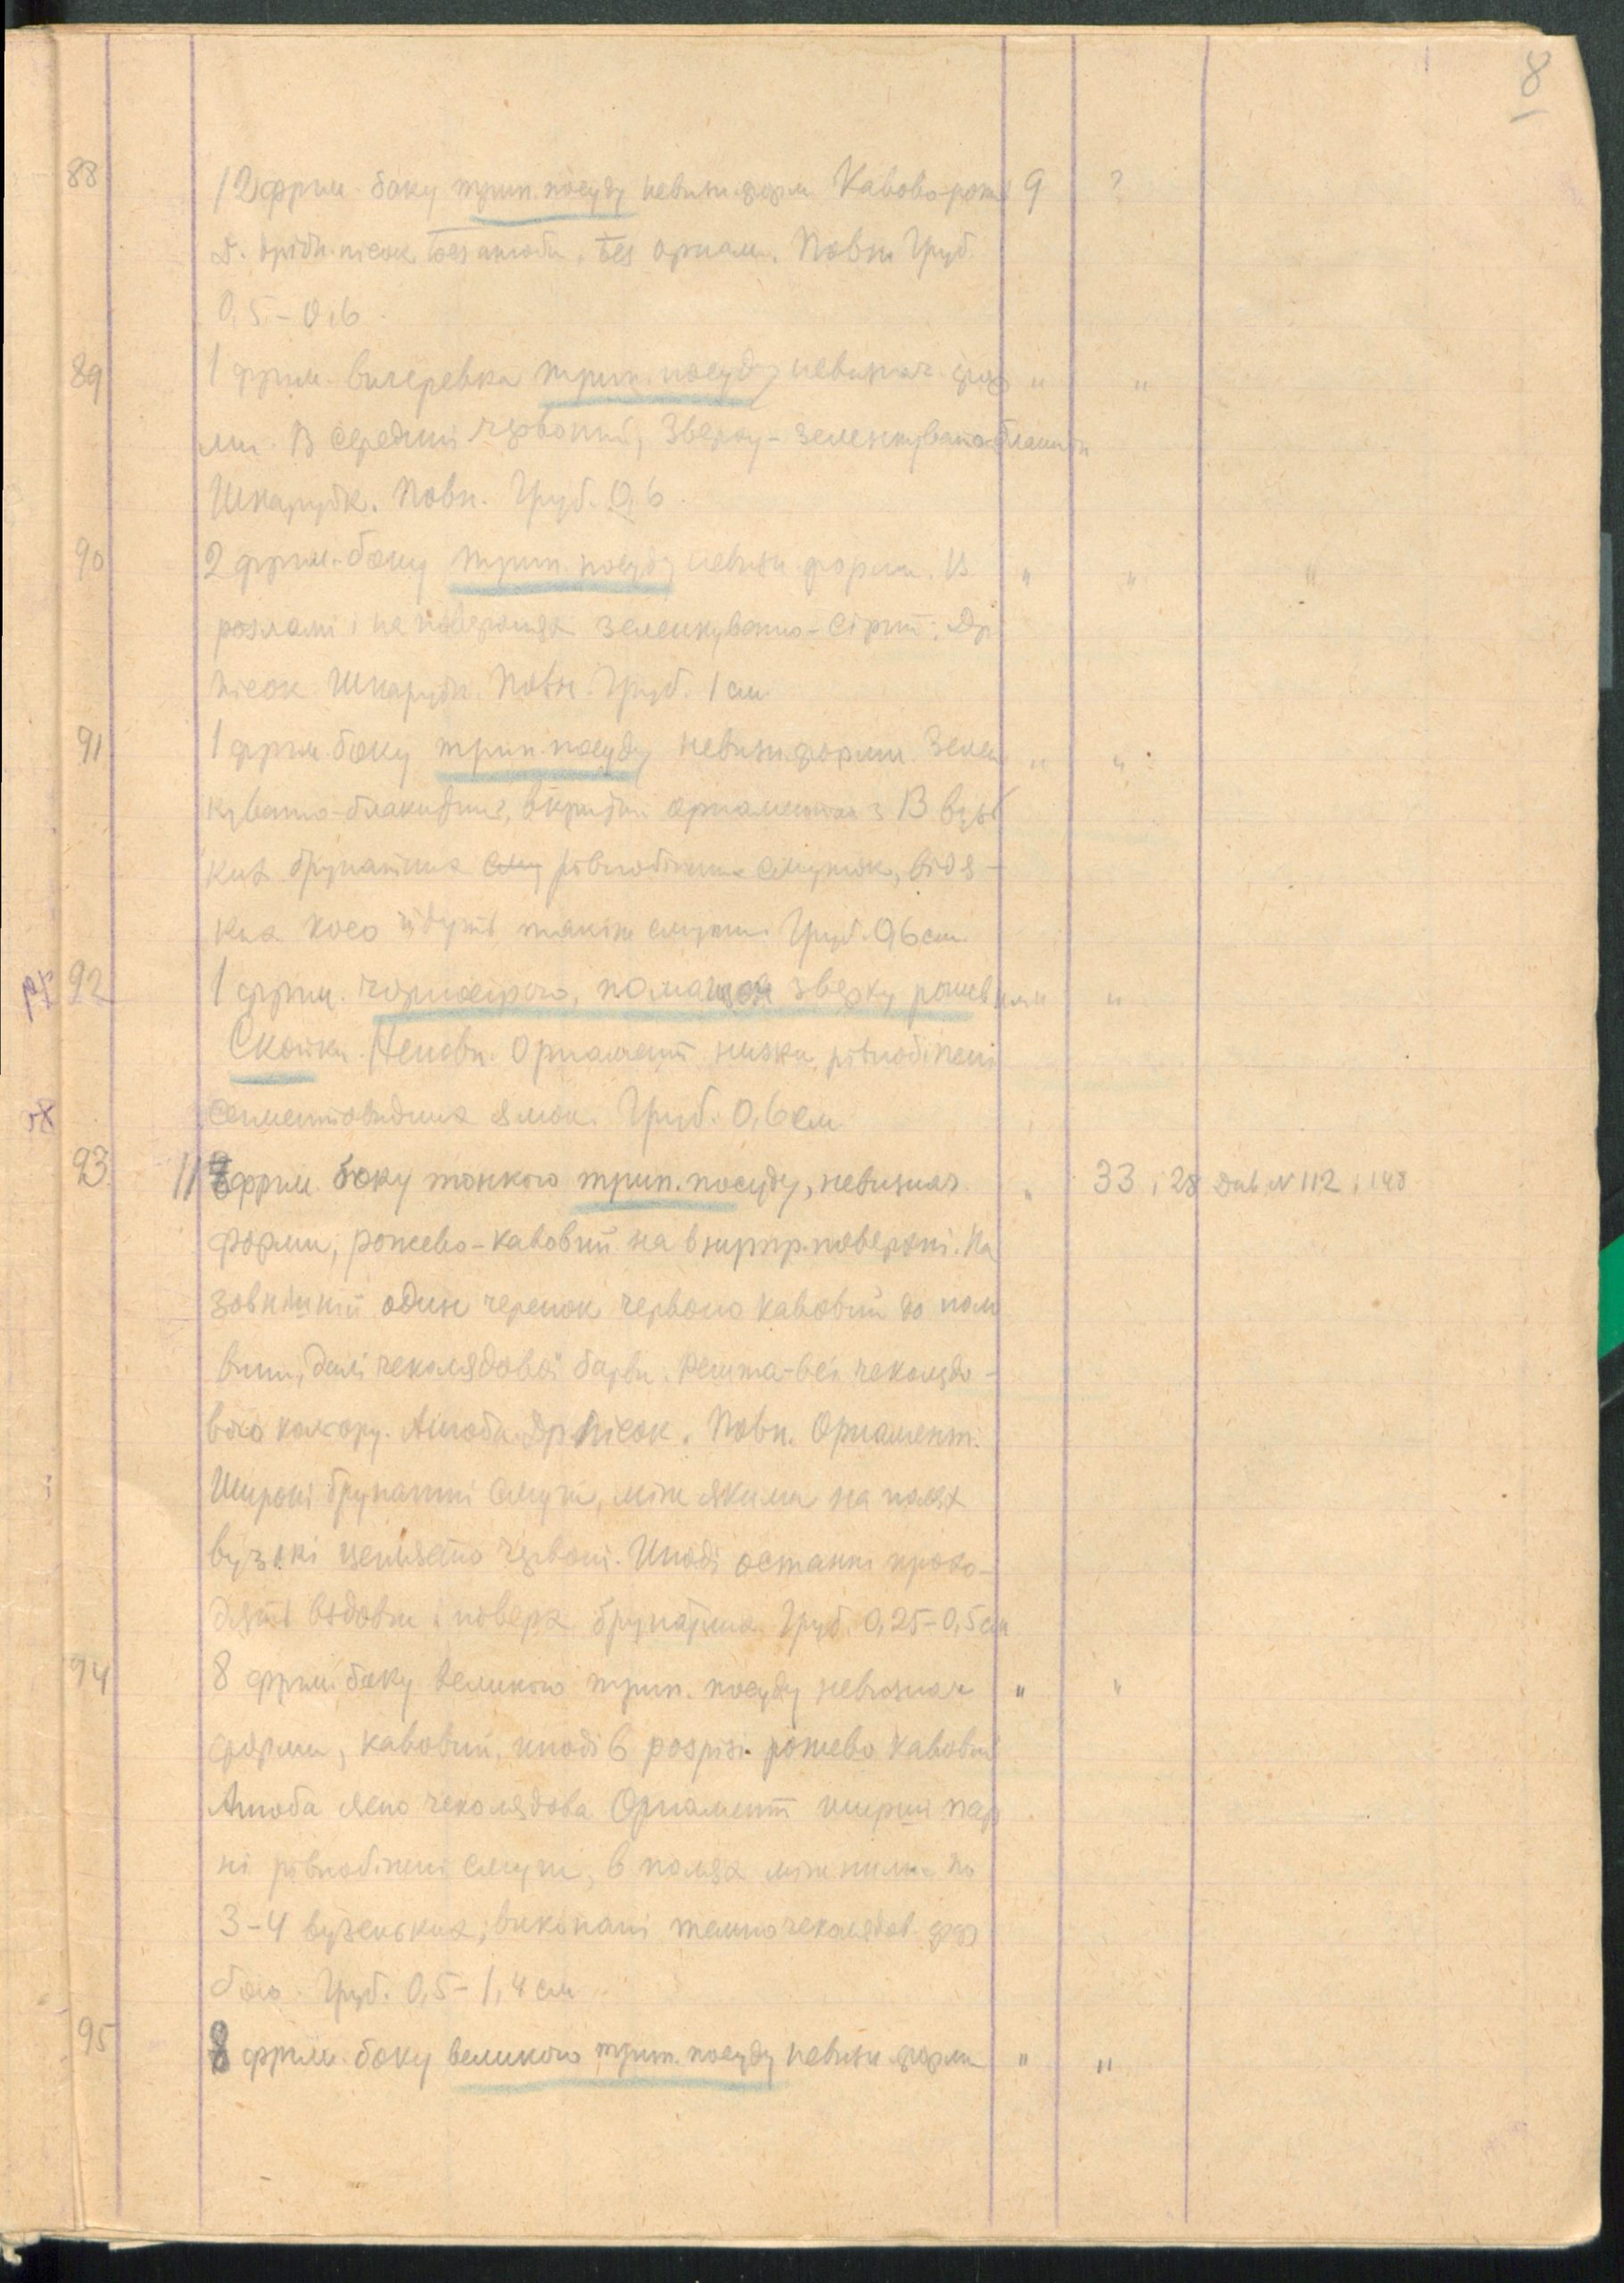 8
88 12 фрагм. боку трип. посуду невизн. форм. Кавово-рож 9 ?
дрібн. пісок без ангоби, без орнам. Повн. Груб.
0,5 - 0,6.
89 1 фрагм. вичеревка трип. посуду невизнач. фор " "
ми. В середині червоний, зверху - зеленкувато-блакитн
Шкарубк. Повн. Груб. 0,6.
90 2 фрагм. боку трип. посуду невизн. форми. В " " "
розламі і на поверхнях зеленкувато-сірий. Др.
пісок. Шкарубк. Повн. Груб. 1 см
91 1 фрагм. боку трип. посуду невизн. форми. Зелен " "
кувато-блакитний, вкритий орнаментом з 13 вузь
ких брунатних рівнобіжних смужок, від я-
ких косо йдуть такі ж смужки. Груб. 0,6 см.
92 1 фрагм. чорносірого, помащен зверху рожевим " "
Скойки. Неповн. Орнамент низка рівнобіжні
сегментовидних ямок. Груб. 0,6 см
93 11 фрагм. боку тонкого трип. посуду, невизнач. " 33 і 28 Див. N 112 і 148
форми, рожево-кавовий на внутр. поверхні. На
зовнішній один черепок червоно кавовий до поло
вини, далі чеколядової барви. Решта - всі чеколядо-
вого кольору. Ангоба. Др. пісок. Повн. Орнамент:
Широкі брунатні смуги, між якими на полях
вузькі цеглясто червоні. Иноді останні прохо-
дять вздовж і поверх брунатних. Груб. 0,25-0,5 см
94 8 фрагм. боку великого трип. посуду невизнач " "
форми, кавовий, иноді в розрізі рожево кавовий
Ангоба ясно чеколядова. Орнамент ширші пар
ні рівнобіжні смуги, в полях між ними по
3-4 вузеньких; виконані темночеколядов. фар
бою. Груб. 0,5 - 1,4 см
95 8 фрагм. боку великого трип. посуду невизн форми " "